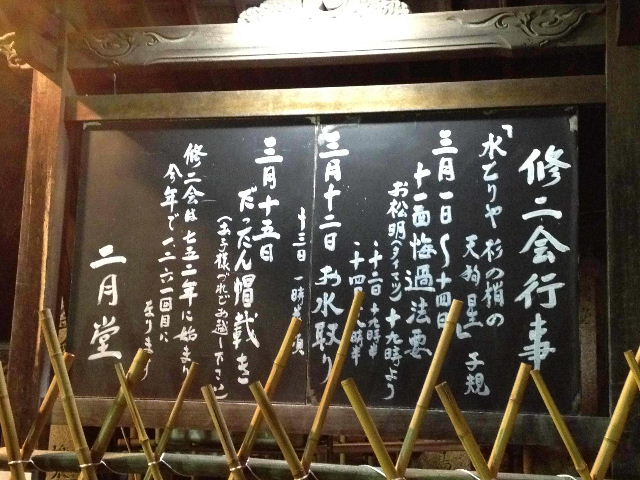 修二会行事
「水とりや杉の梢の
天狗星」 子規
三月一日〜十四日
十一面悔過法要
お松明(タイマツ)十九時より
十二日 十九時半
十四日
三月十二日 お水取り
十三日 一時半頃
三月十五日
だったん帽戴き
(お子様づれでお越し下さい)
修二会は七五二年に始まり
今年で一二六一回目に
なります
二月堂